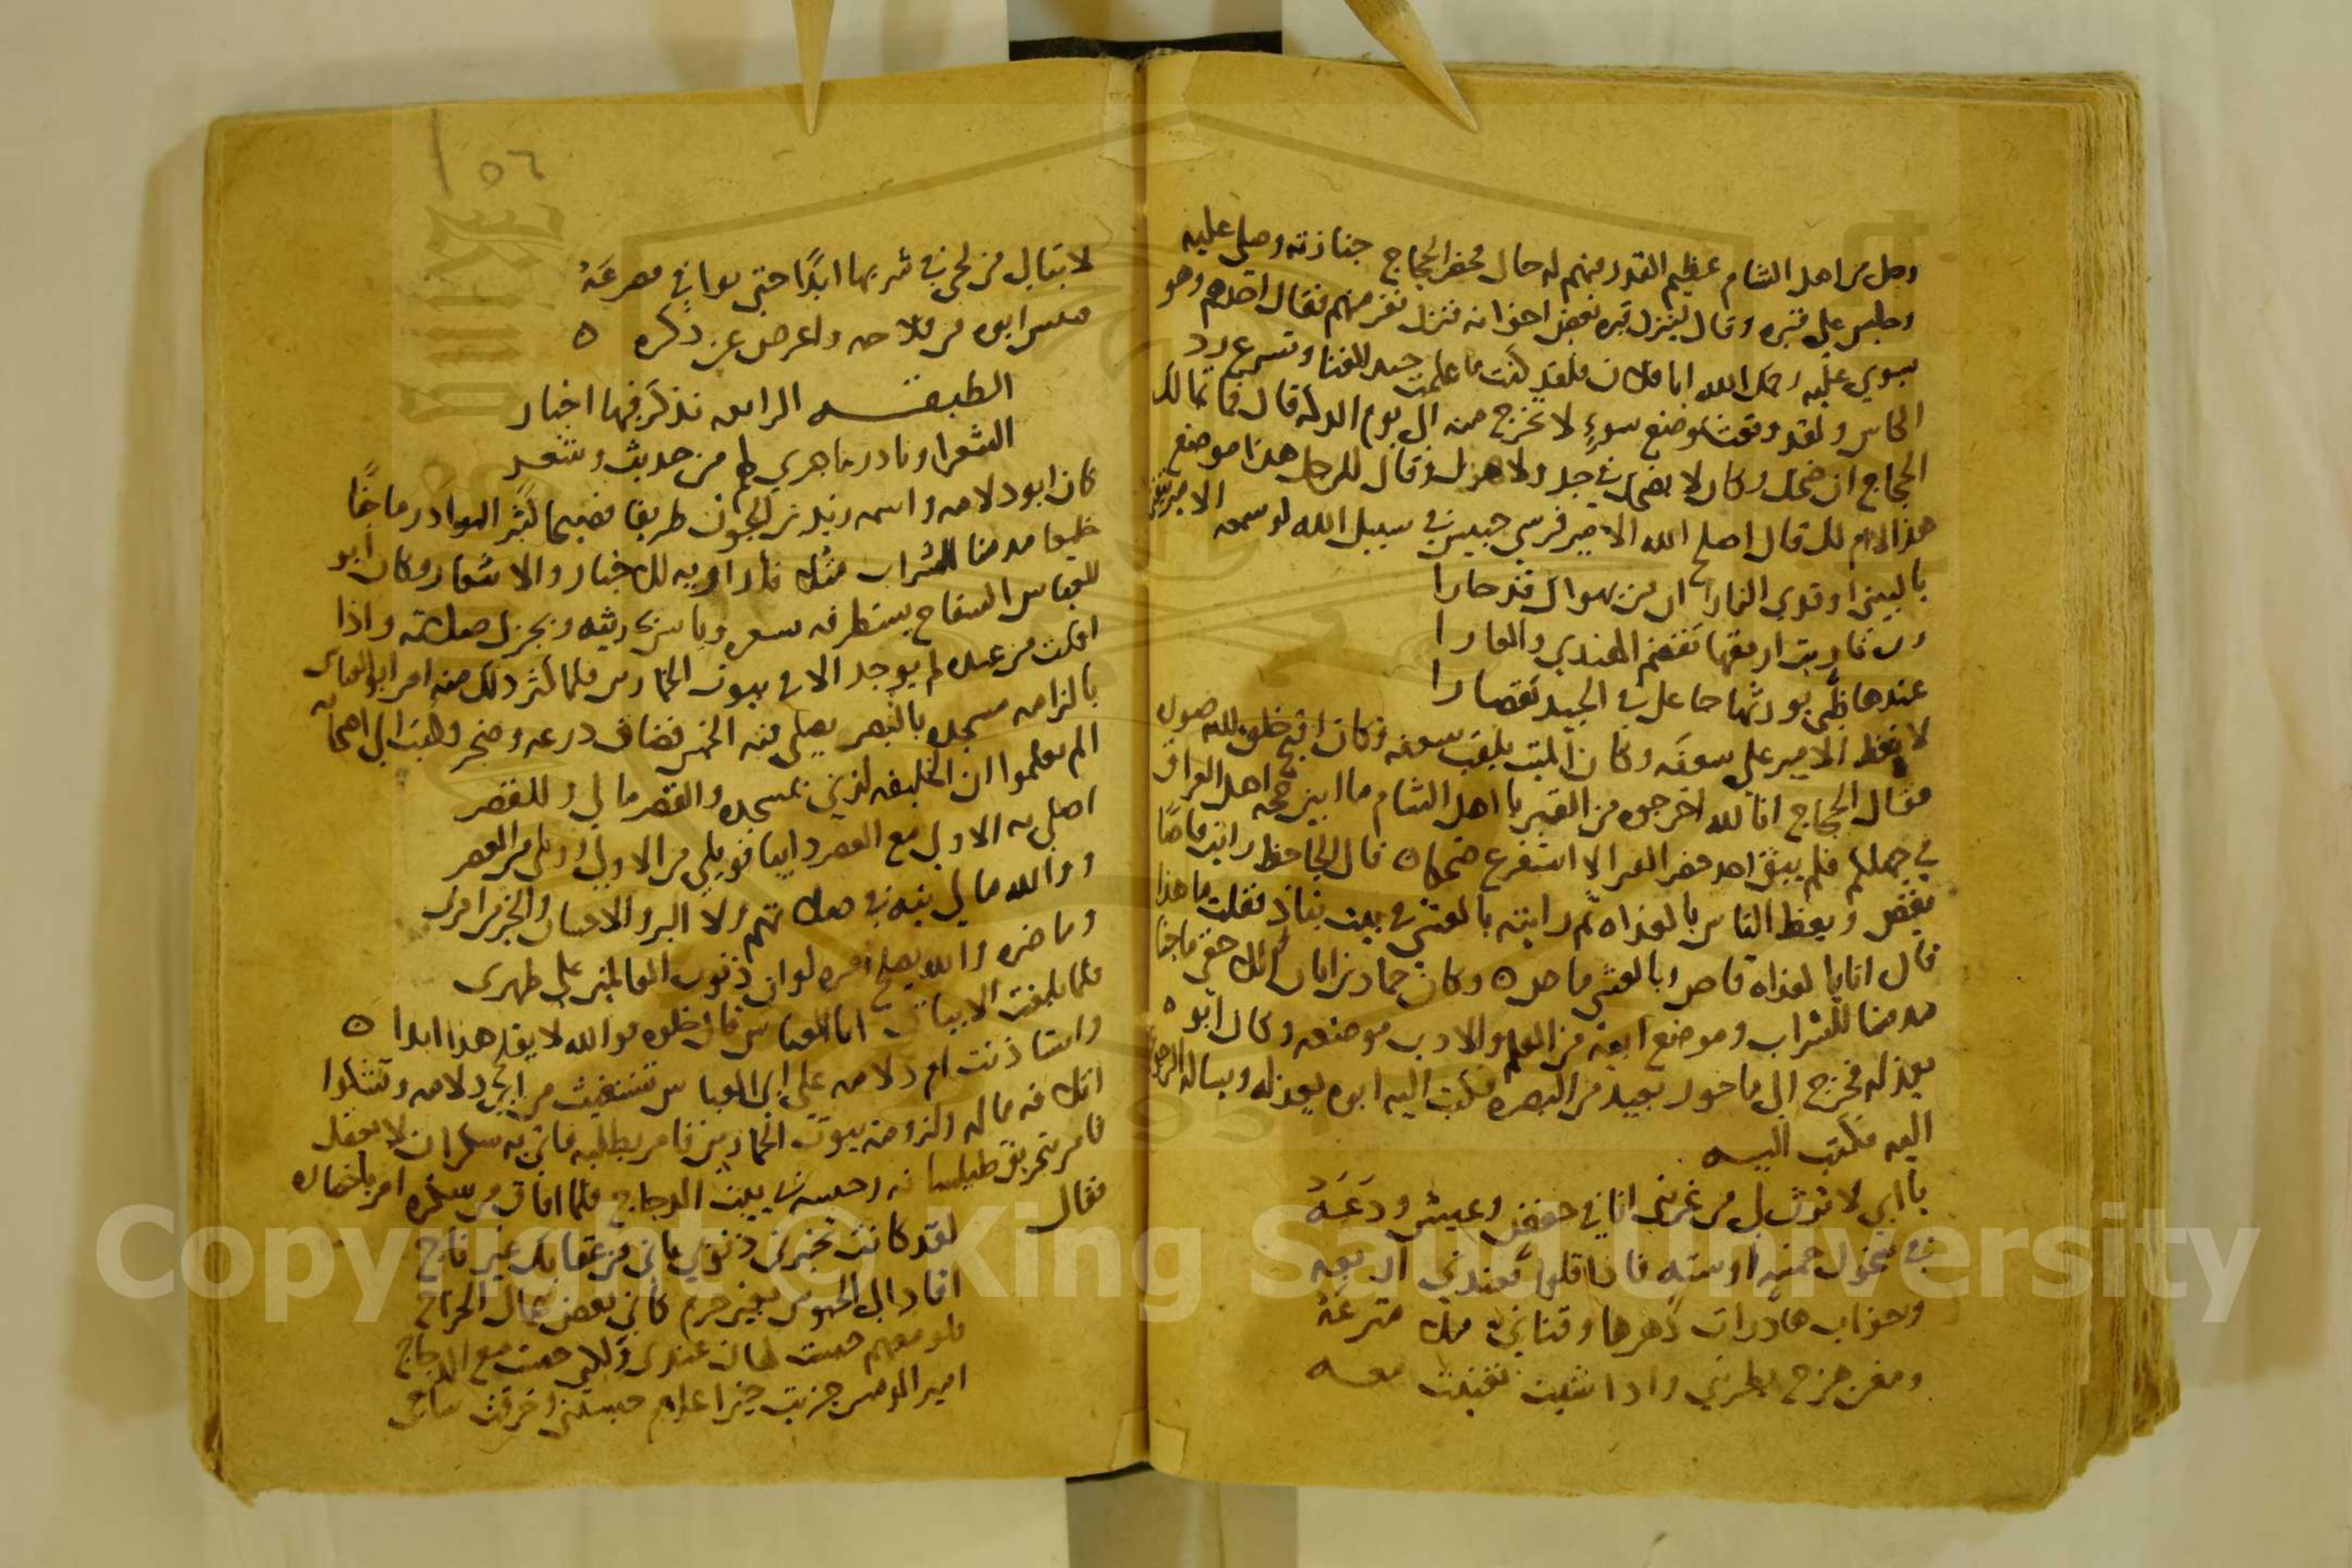 رجل من اهل الشام عظيم القدر منهم له حال فحضر الحجاج جنازته وصلى عليه
وجلس على قبره وقال لينزل قبره بعض اخوانه فنزل نفر منهم فقال احدهم وهو
يسوي عليه رحمك الله ابا فلان فلقد كنت ما علمت تجيد الغنا وتسرع رد
الكاس ولقد وقعت موضع سوء لا تخرج منه الى يوم الدكه قال فما تمالك
الحجاج ان ضحك وكان لا يضحك في جد ولا هزل وقال للرجل هذا موضع
هذا لا ام لك قال اصلح الله الامير فرسي حبيس في سبيل الله لو سمعه الامير يتغنى
يا لبينى اوقدي النارا ان من تهواك قد حارا
رب نار بت ارمقها تقضم الهندي والغارا
عندها ظبي يورثها عاقد في الجيد تقصارا
لانعظ الامير على سعفه وكان الميت يلقب سعفه وكان اقبح خلق الله صوره
فقال الحجاج انا لله اخرجوه من القبر يا اهل الشام ما ابين حجه اهل العراق
في جهلكم فلم يبق احد حضر القبر الا استفرغ ضحكا ه قال الجاحظ رايت قاصا
يقص ويعظ الناس بالغداه ثم رايته بالعشي في بيت نباذ فقلت ما هذا
قال انا بالغداه قاص وبالعشي ماص ه وكان حماد بن ابان اللاحقي ماجنا
مدمنا للشراب وموضع ابيه من العلم والادب موضعه وكان ابوه
يعذله فخرج الى ماخور بعيد من البصره فكتب اليه ابوه يعذله ويساله الرجوع
اليه فكتب اليه
يا ابي لا ترث لي من غربتي انا في خفض وعيش ودعه
في نخول خمسه او سته فاذا قلوا فعندي اربعه
وخواب هادرات دهرها وقناني مترعه
ومغن هزج يطربني واذا شيت تغنيت معه
١٥٦
لا تبال من لحى في شربها ابدا حتى يوافي مصرعه
فيئس ابوه من فلاحه واعرض عن ذكره ه
الطبقه الرابعه نذكر فيها اخبار
الشعرا ونادر ما جرى لهم من حديث وشعر
كان ابو دلامه واسمه زند بن الجون ظريفا فصيحا كثير النوادر ماجنا
خليعا مدمنا للشراب راويه للاخبار والاشعار وكان ابو
العباس السفاح يستظرف شعره ويانس بحديثه ويجزل صلته واذا
افلت من عنده لم يوجد الا في بيوت الخمارين فلما كثر ذلك منه امر ابو العباس
بالزامه مسجده بالقصر يصلي فيه الخمس فضاق ذرعه وضجر وكتب الى اصحابه
الم تعلموا ان الخليفه لزني بمسجده والقصر ما لي وللقصر
اصلي به الاولى مع العصر دايبا فويلي من الاولى وويلي من العصر
ووالله ما لي نيه في صلاتهم ولا البر والاحسان والخير امري
وما ضره والله يصلح امره لو ان ذنوب العالمين على ظهري
فلما بلغت الابيات ابا العباس قال خلوه فوالله لا يفلح هذا ابدا ه
واستاذنت ام دلامه على ابي العباس تستغيث من ابي دلامه وتشكوا
اتلافه ماله ولزومه بيوت الخمارين فامر بطلبه فاتي به سكران لا يعقل
فامر بتحريق طيلسانه وحبسه في بيت الدجاج فلما افاق من سكره امر باحضاره
فقال
لقد كانت تخبرني ذنوبي باني من عقابك غير ناج
اقاد الى الحبوس بغير جرم كاني بعض عمال الخراج
فلو معهم حبست لهان عندي ولكني حبست مع الدجاج
امير المومنين جزيت خيرا علام حبستني وخرقت ساجي